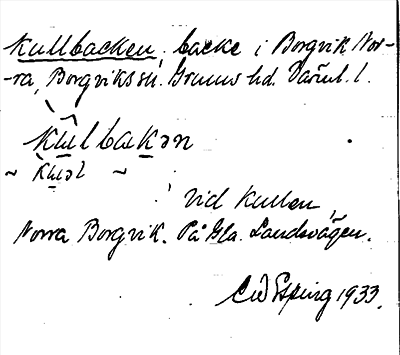 Kullbacken, backe i Borgvik Nor-
-ra, Borgviks sn. Grums hd. Värml. l.
kulbakən
~ kuəl ~
vid Kullen,
Norra Borgvik. På Gla. Landsvägen.
C W Esping 1933.